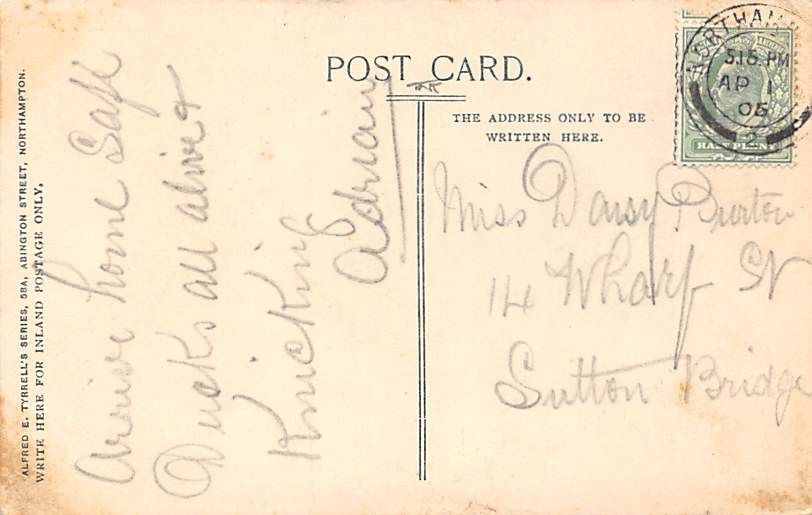 POST CARD.
THE ADDRESS ONLY TO BE
WRITTEN HERE.
NORTHAM
5.15 PM
AP 1
05
HALFPENNY
Miss Daisy Burton
14 Wharf St
Sutton Bridge
Arrive home Safe
Ducks all alive &
Knicking
Adrian
ALFRED E. TYRRELL'S SERIES, 58A, ABINGTON STREET, NORTHAMPTON.
WRITE HERE FOR INLAND POSTAGE ONLY,